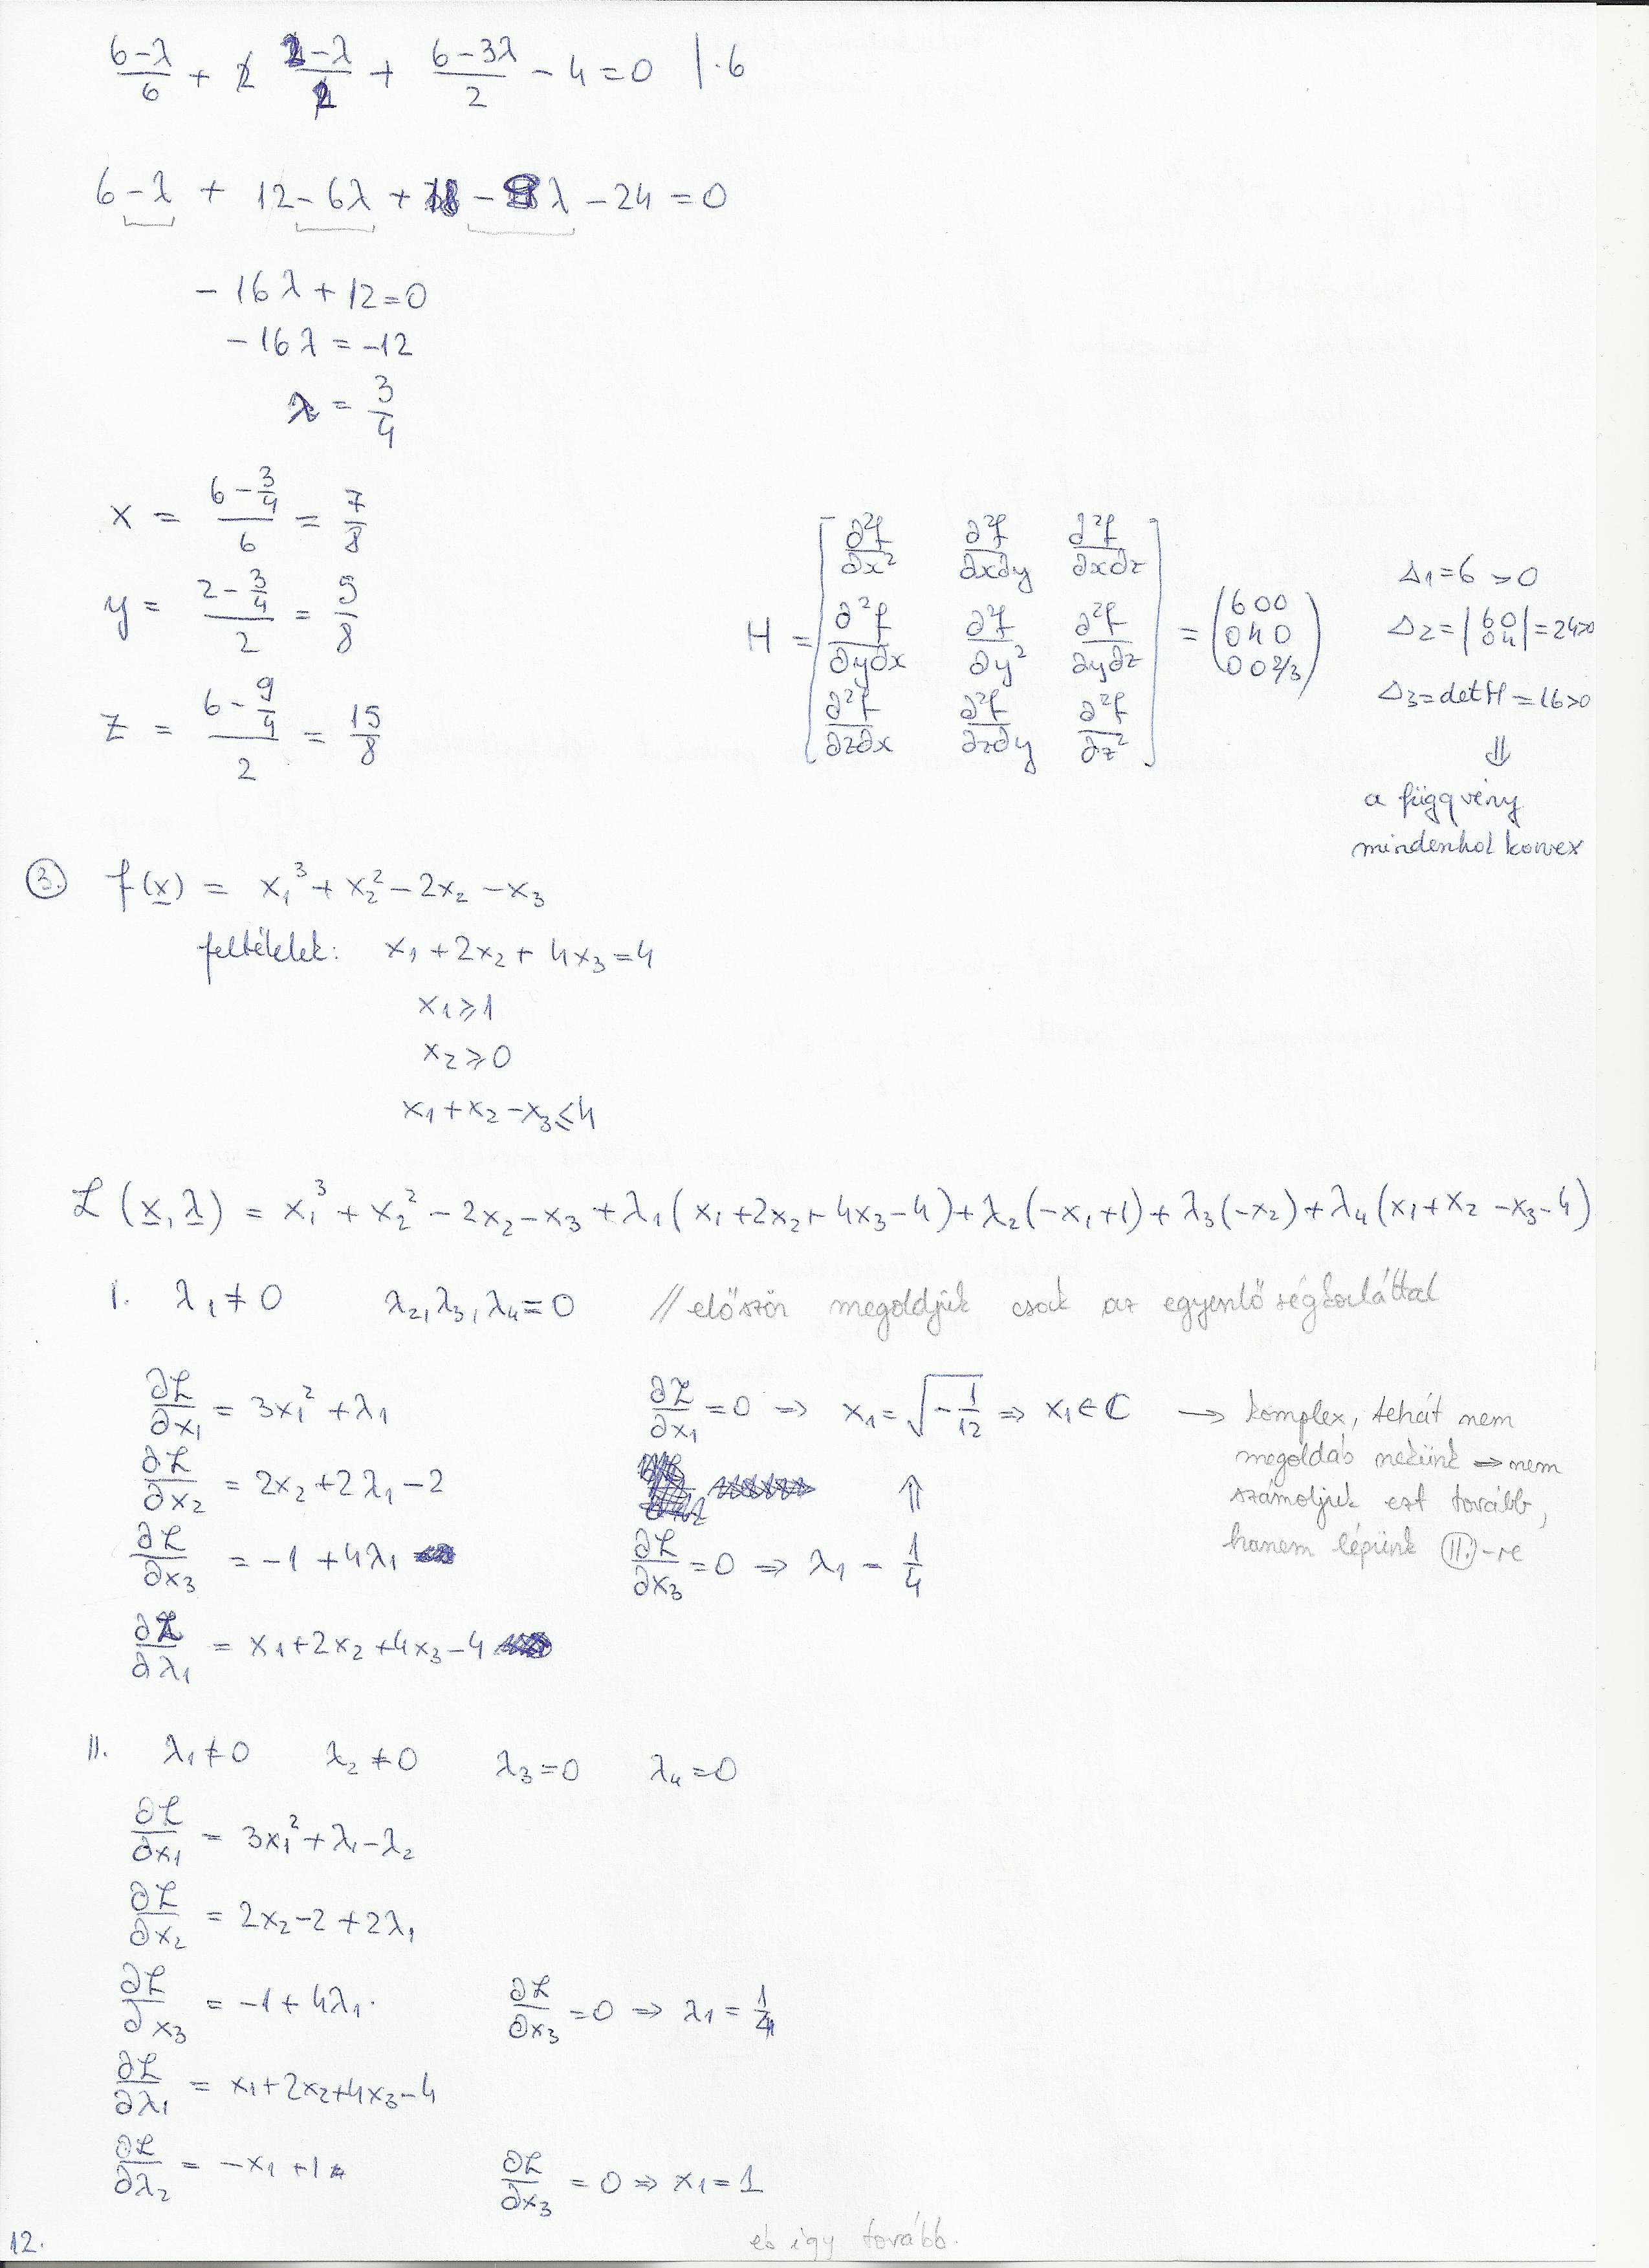 (6-λ)/6 + (2-λ)/2 + (6-3λ)/2 - 4 = 0 |·6
6-λ + 12-6λ + 18-9λ - 24 = 0
-16λ + 12 = 0
-16λ = -12
λ = 3/4
x = (6 - 3/4)/6 = 7/8
y = (2 - 3/4)/2 = 5/8
z = (6 - 9/4)/2 = 15/8
H = [∂²f/∂x² ∂²f/∂x∂y ∂²f/∂x∂z
∂²f/∂y∂x ∂²f/∂y² ∂²f/∂y∂z
∂²f/∂z∂x ∂²f/∂z∂y ∂²f/∂z²]
= (6 0 0
0 4 0
0 0 2/3)
Δ1 = 6 > 0
Δ2 = |6 0
0 4| = 24>0
Δ3 = det H = 16>0
⇓
a függvény
mindenhol konvex
3. f(x) = x₁³ + x₂² - 2x₂ - x₃
feltételek: x₁ + 2x₂ + 4x₃ = 4
x₁ ≥ 1
x₂ ≥ 0
x₁ + x₂ - x₃ ≤ 4
ℒ(x, λ) = x₁³ + x₂² - 2x₂ - x₃ + λ₁(x₁ + 2x₂ + 4x₃ - 4) + λ₂(-x₁ + 1) + λ₃(-x₂) + λ₄(x₁ + x₂ - x₃ - 4)
I. λ₁ ≠ 0 λ₂, λ₃, λ₄ = 0 // először megoldjuk csak az egyenlőségkorláttal
∂ℒ/∂x₁ = 3x₁² + λ₁ ∂ℒ/∂x₁ = 0 ⇒ x₁ = √(-1/12) ⇒ x₁ ∈ ℂ → komplex, tehát nem
megoldás nekünk ⇒ nem
∂ℒ/∂x₂ = 2x₂ + 2λ₁ - 2 ⇑ számoljuk ezt tovább,
∂ℒ/∂x₃ = -1 + 4λ₁ ∂ℒ/∂x₃ = 0 ⇒ λ₁ = 1/4 hanem lépünk II.-re
∂ℒ/∂λ₁ = x₁ + 2x₂ + 4x₃ - 4
II. λ₁ ≠ 0 λ₂ ≠ 0 λ₃ = 0 λ₄ = 0
∂ℒ/∂x₁ = 3x₁² + λ₁ - λ₂
∂ℒ/∂x₂ = 2x₂ - 2 + 2λ₁
∂ℒ/∂x₃ = -1 + 4λ₁ ∂ℒ/∂x₃ = 0 ⇒ λ₁ = 1/4
∂ℒ/∂λ₁ = x₁ + 2x₂ + 4x₃ - 4
∂ℒ/∂λ₂ = -x₁ + 1 ∂ℒ/∂x₃ = 0 ⇒ x₁ = 1
12. és így tovább.